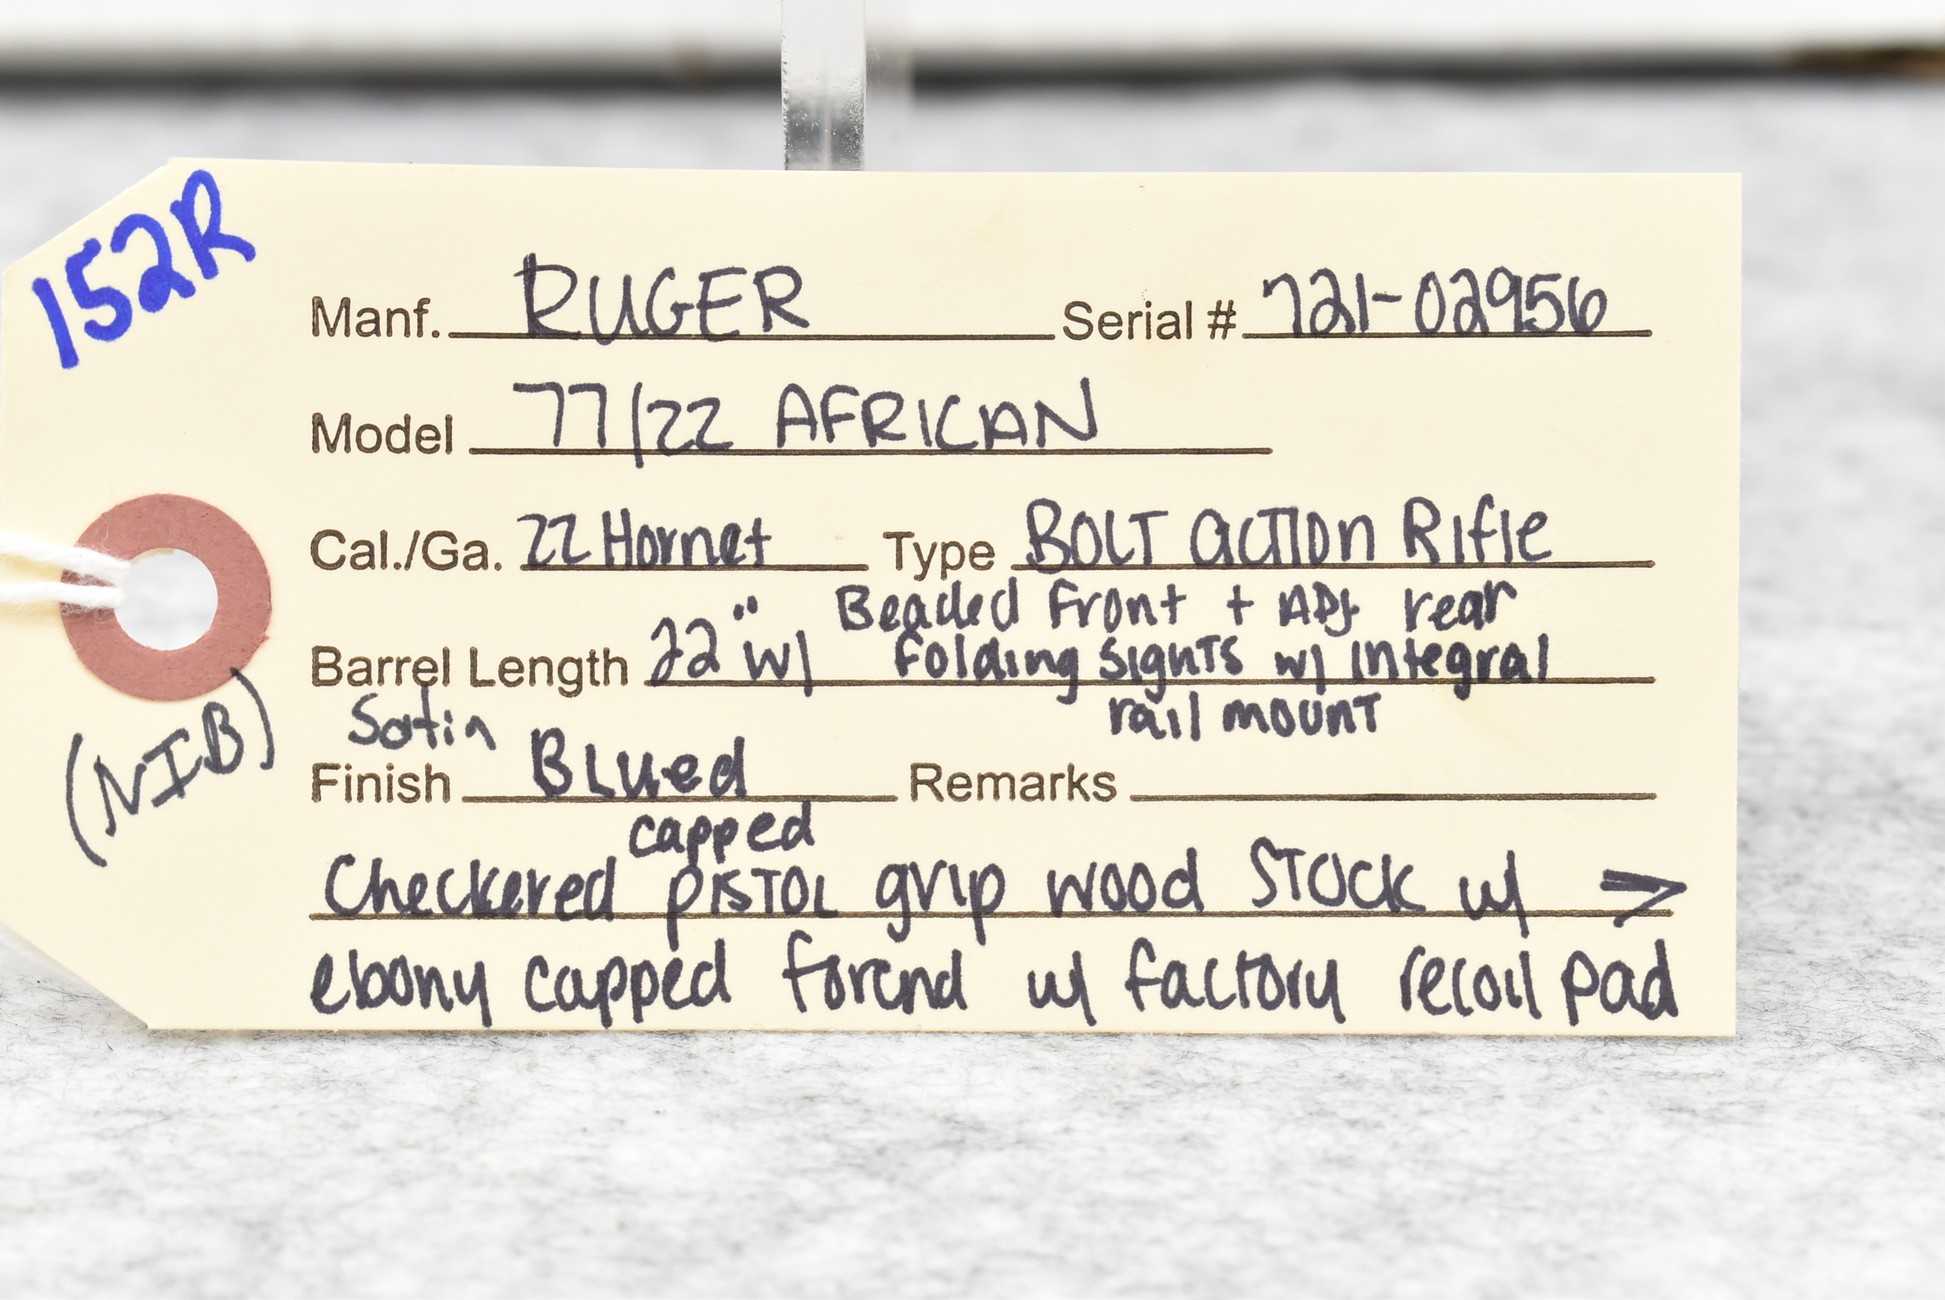 152R
Manf. RUGER Serial # 721-02956
Model 77/22 AFRICAN
Cal./Ga. 22 Hornet Type BOLT action Rifle
Beaded Front + ADJ rear
Barrel Length 22" w/ folding sights w/ integral
rail mount
(NIB)
Satin
Finish Blued Remarks
capped
Checkered PISTOL grip wood STOCK w/ →
ebony capped forend w/ factory recoil pad